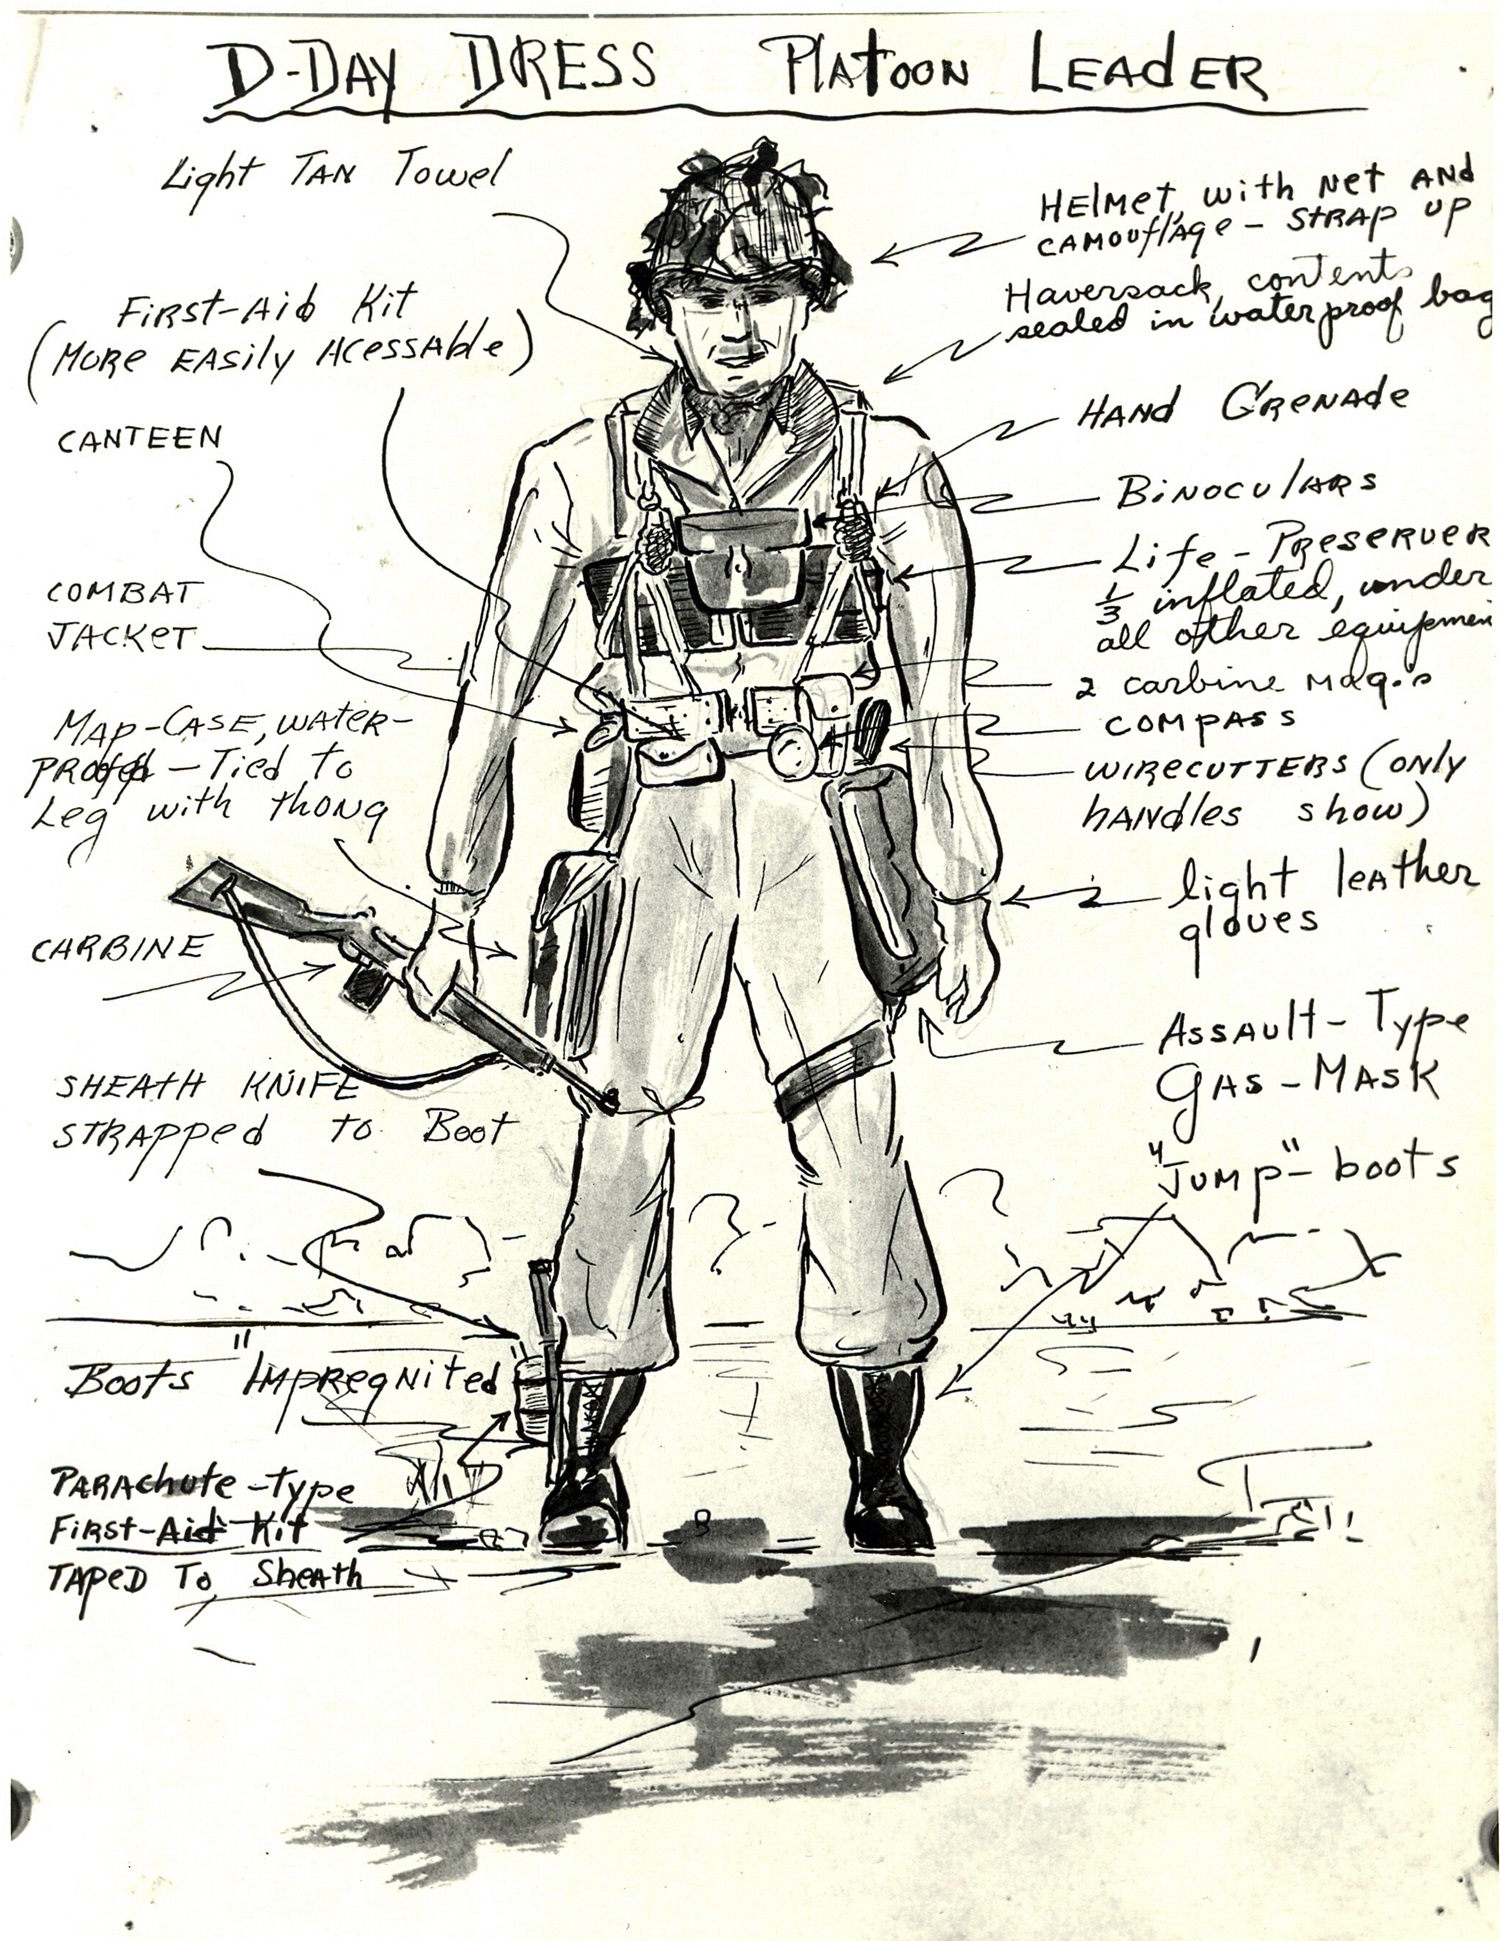 D-DAY DRESS PLATOON LEADER
Light TAN Towel
FIRST-AID Kit
(MORE EASILY ACESSABLE)
CANTEEN
COMBAT
JACKET
MAP-CASE, WATER-
PROOFED - TIED to
Leg with thong
CARBINE
SHEATH KNIFE
STRAPPED TO BOOT
BOOTS "IMPREGNITED"
PARAchute-type
FIRST-Aid Kit
TAPED TO Sheath
HELMET, with NET AND
CAMOUflAge - STRAP UP
Haversack, contents
sealed in waterproof bag
HAND GRENADE
BINOCULARS
Life-PRESERVER
1/3 inflated, under
all other equipmen
2 carbine mags
COMPASS
WIRECUTTERS (only
hANdles show)
light leATher
gloves
ASSAULT-TYPE
GAS-MASK
"JUMP"-boots